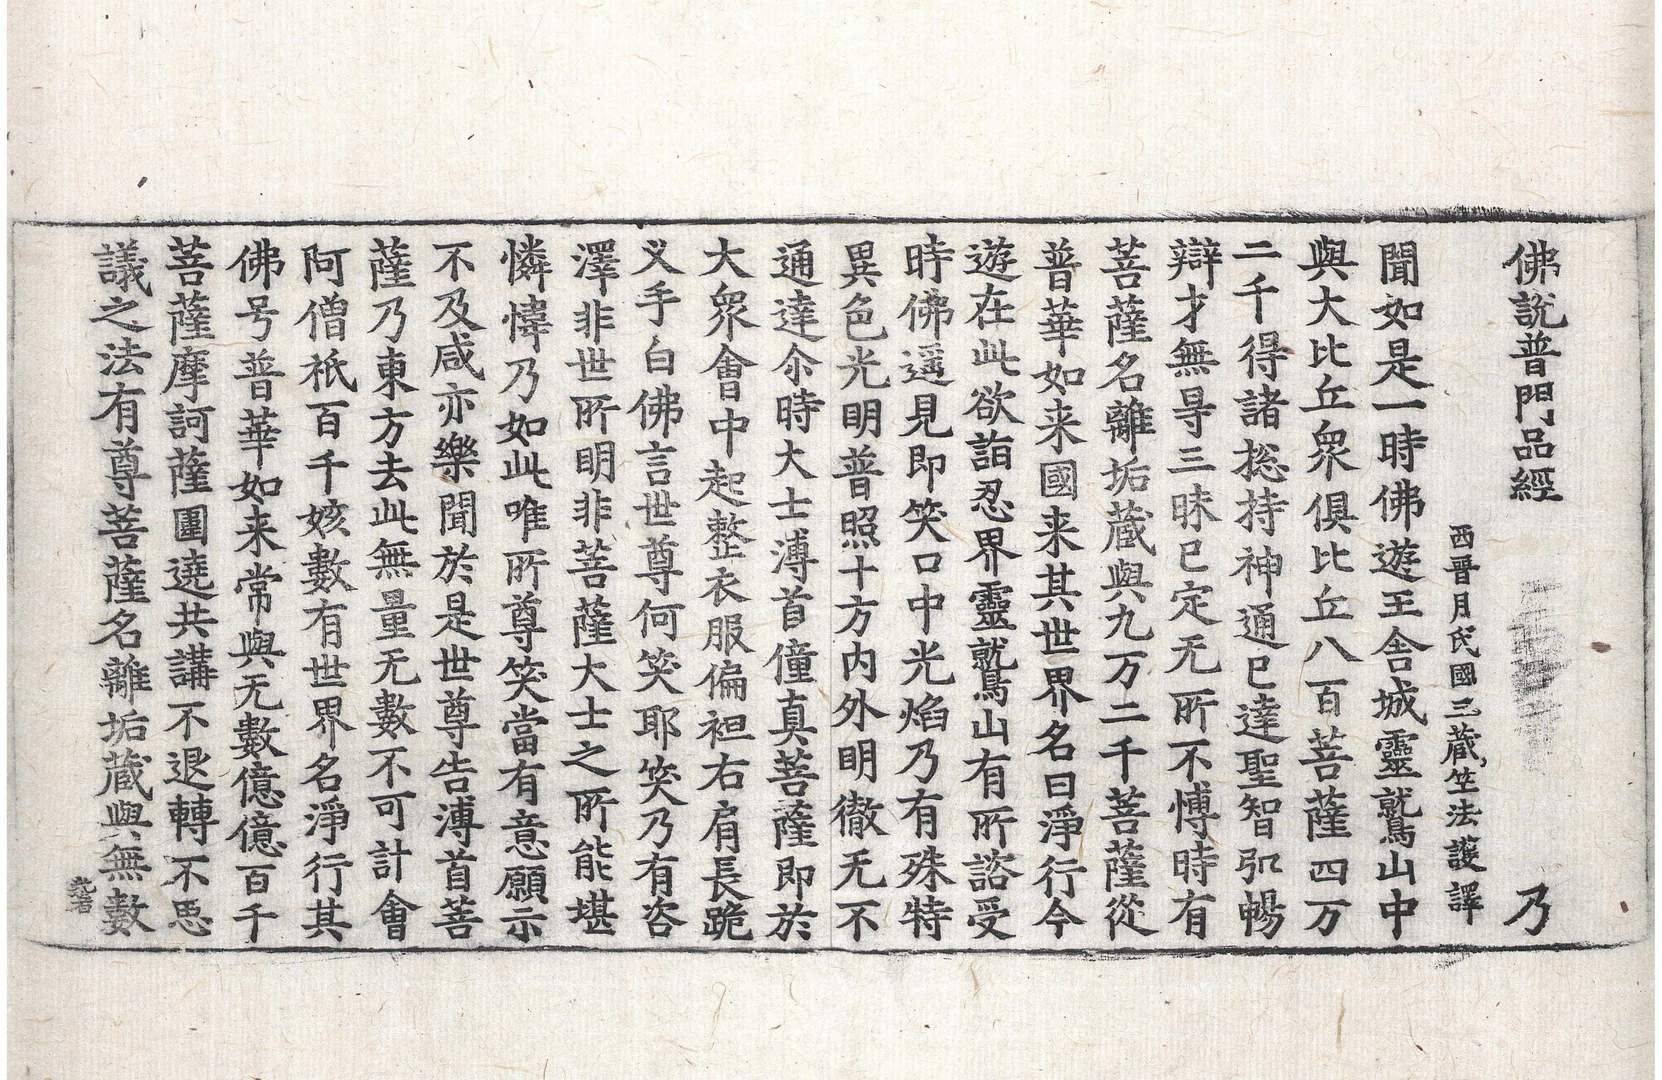 佛說普門品經 乃
西晉月氏國三藏竺法護譯
聞如是一時佛遊王舍城靈鷲山中
與大比丘眾俱比丘八百菩薩四万
二千得諸揔持神通已達聖智弘暢
辯才無㝵三昧已定无所不愽時有
菩薩名離垢藏與九万二千菩薩從
普華如来國来其世界名曰淨行今
遊在此欲詣忍界靈鷲山有所諮受
時佛遥見即笑口中光焰乃有殊特
異色光明普照十方内外明徹无不
通達尒時大士溥首僮真菩薩即於
大眾會中起整衣服偏袒右肩長跪
叉手白佛言世尊何笑耶笑乃有咨
澤非世所明非菩薩大士之所能堪
憐愇乃如此唯所尊笑當有意願示
不及咸亦樂聞於是世尊告溥首菩
薩乃東方去此無量无數不可計會
阿僧祇百千姟數有世界名淨行其
佛号普華如来常與无數億億百千
菩薩摩訶薩圍遶共講不退轉不思
議之法有尊菩薩名離垢藏與無數